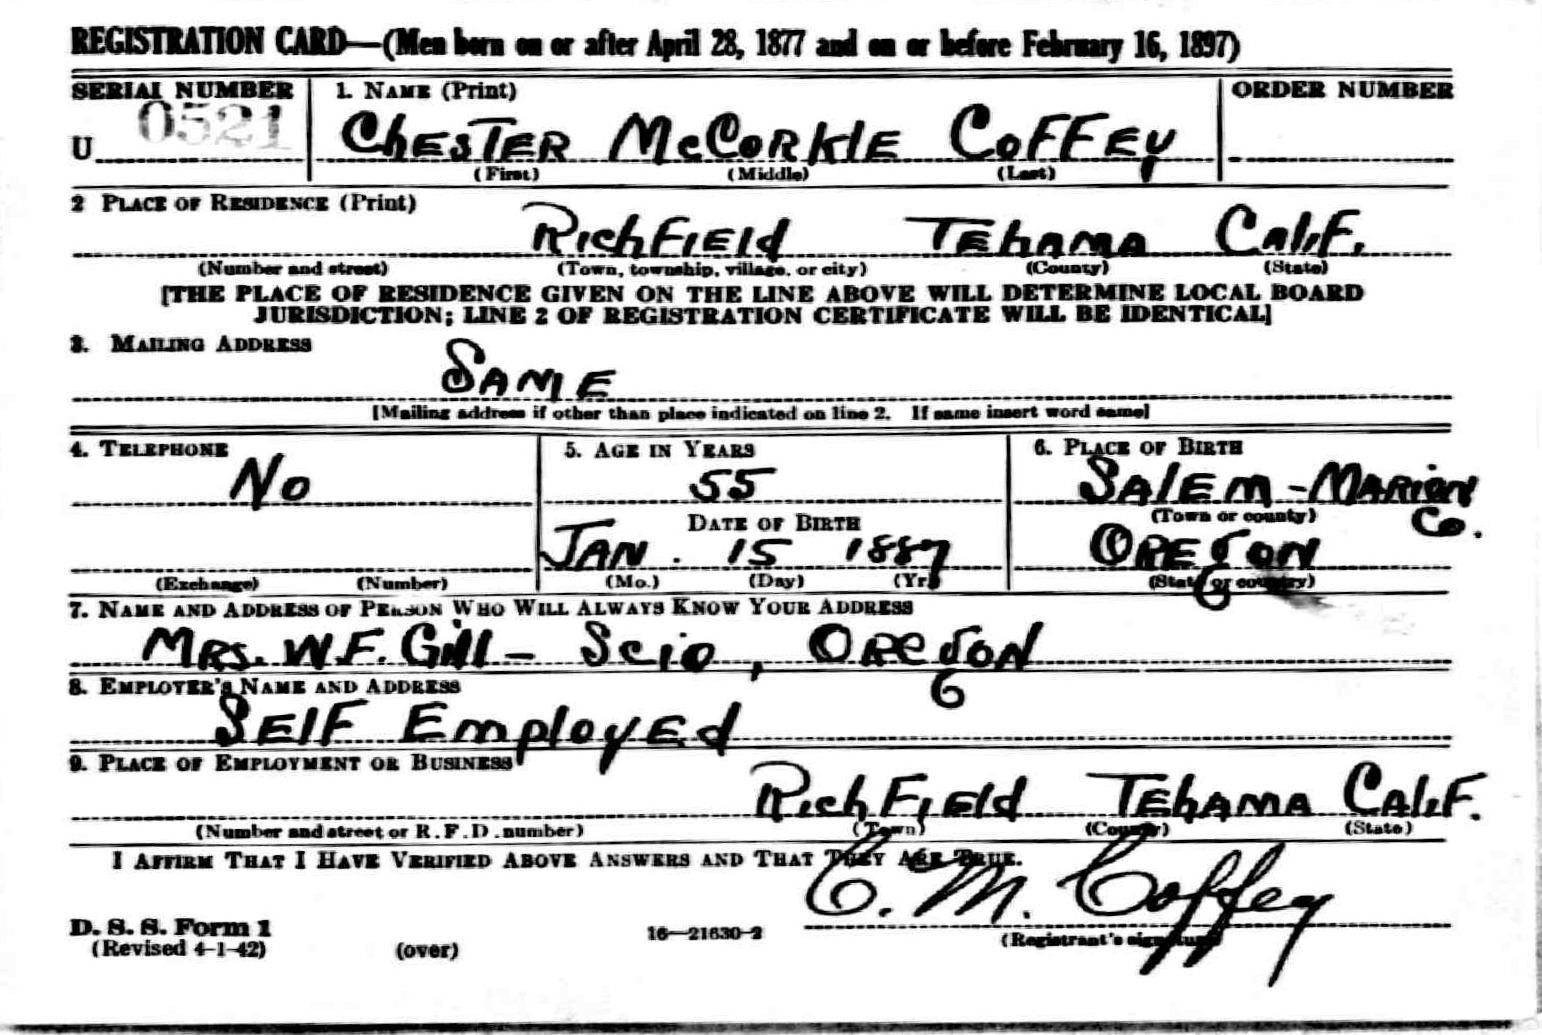 REGISTRATION CARD—(Men born on or after April 28, 1877 and on or before February 16, 1897)
SERIAL NUMBER 1. NAME (Print) ORDER NUMBER
U 0521 CHESTER McCORKLE COFFEY
(First) (Middle) (Last)
2 PLACE OF RESIDENCE (Print)
RICHFIELD TEHAMA CALIF.
(Number and street) (Town, township, village, or city) (County) (State)
[THE PLACE OF RESIDENCE GIVEN ON THE LINE ABOVE WILL DETERMINE LOCAL BOARD
JURISDICTION; LINE 2 OF REGISTRATION CERTIFICATE WILL BE IDENTICAL]
3. MAILING ADDRESS
SAME
[Mailing address if other than place indicated on line 2. If same insert word same]
4. TELEPHONE 5. AGE IN YEARS 6. PLACE OF BIRTH
NO 55 SALEM - MARION
(Town or county) Co.
DATE OF BIRTH
JAN. 15 1887 OREGON
(Exchange) (Number) (Mo.) (Day) (Yr.) (State or country)
7. NAME AND ADDRESS OF PERSON WHO WILL ALWAYS KNOW YOUR ADDRESS
MRS. W.F. Gill - Scio, OREGON
8. EMPLOYER'S NAME AND ADDRESS
SELF EMPLOYED
9. PLACE OF EMPLOYMENT OR BUSINESS
RICHFIELD TEHAMA CALIF.
(Number and street or R. F. D. number) (Town) (County) (State)
I AFFIRM THAT I HAVE VERIFIED ABOVE ANSWERS AND THAT THEY ARE TRUE.
C. M. Coffey
D. S. S. Form 1
(Revised 4-1-42) (over) 16—21630-2 (Registrant's signature)